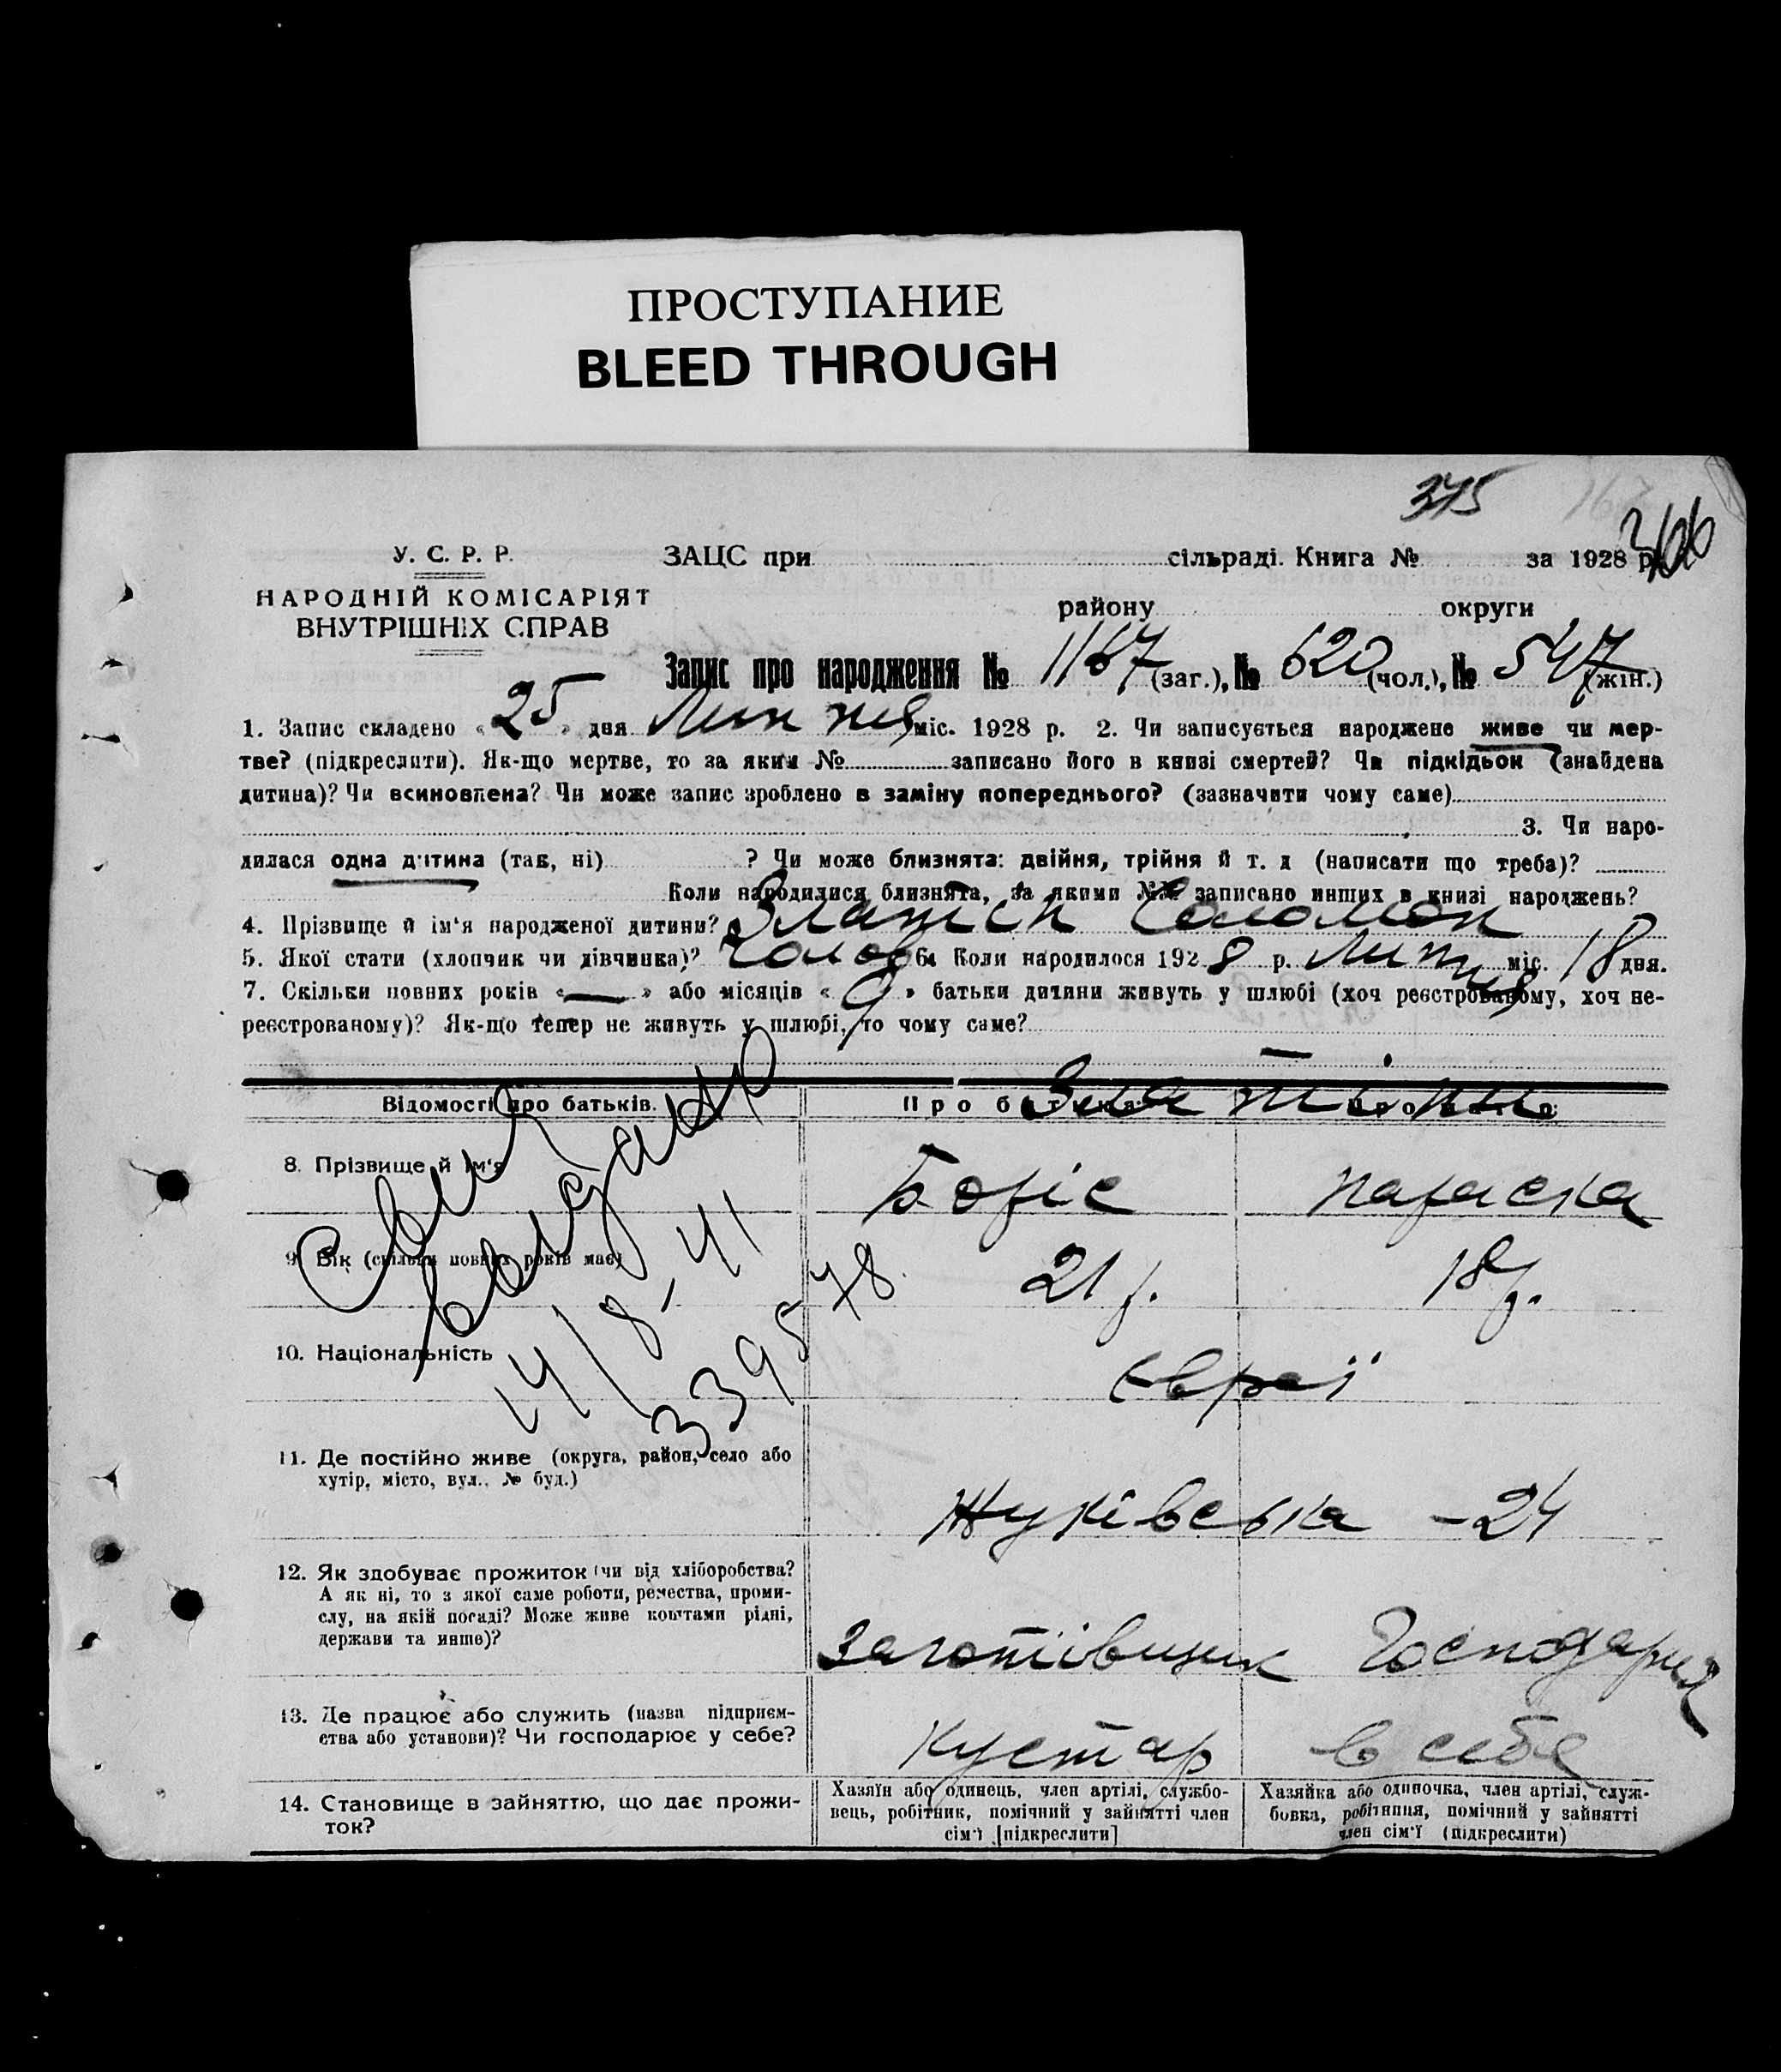 ПРОСТУПАНИЕ
BLEED THROUGH
375
366
У. С. Р. Р. ЗАЦС при сільраді. Книга № за 1928 р.
НАРОДНІЙ КОМІСАРІЯТ
ВНУТРІШНІХ СПРАВ
району округи
Запис про народження № 1167 (заг.), № 620 (чол.), № 547 (жін.)
1. Запис складено « 25 » дня Липня міс. 1928 р. 2. Чи записується народжене живе чи мер-
тве? (підкреслити). Як-що мертве, то за яким № записано його в книзі смертей? Чи підкідьок (знайдена
дитина)? Чи всиновлена? Чи може запис зроблено в заміну попереднього? (зазначити чому саме)
3. Чи наро-
дилася одна дитина (так, ні) ? Чи може близнята: двійня, трійня й т. д (написати що треба)?
Коли народилися близнята, за якими №№ записано инших в книзі народжень?
4. Прізвище й ім'я народженої дитини? Златін Соломон
5. Якої стати (хлопчик чи дівчинка)? Чолов 6. Коли народилося 1928 р. Липня міс. 18 дня.
7. Скільки повних років « — » або місяців « 9 » батьки дитяни живуть у шлюбі (хоч реєстрованому, хоч не-
реєстрованому)? Як-що тепер не живуть у шлюбі, то чому саме?
Відомості про батьків. Про батька Про матір
Златіни
8. Прізвище й ім'я Борис Параска
9. Вік (скільки повних років має) 21 р. 18 р.
10. Національність Євреї
11. Де постійно живе (округа, район, село або
хутір, місто, вул., № буд.)
Жуківська - 24
12. Як здобуває прожиток (чи від хліборобства?
А як ні, то з якої саме роботи, ремества, проми-
слу, на якій посаді? Може живе коштами рідні,
держави та инше)?
Заготівщик Господарня
13. Де працює або служить (назва підприєм-
ства або установи)? Чи господарює у себе?
Кустар в себе
14. Становище в зайняттю, що дає прожи-
ток?
Хазяїн або одинець, член артілі, службо-
вець, робітник, помічний у зайнятті член
сім'ї [підкреслити]
Хазяйка або одиночка, член артілі, служ-
бовка, робітниця, помічний у зайнятті
член сім'ї (підкреслити)
выдано
14/8-41
339578